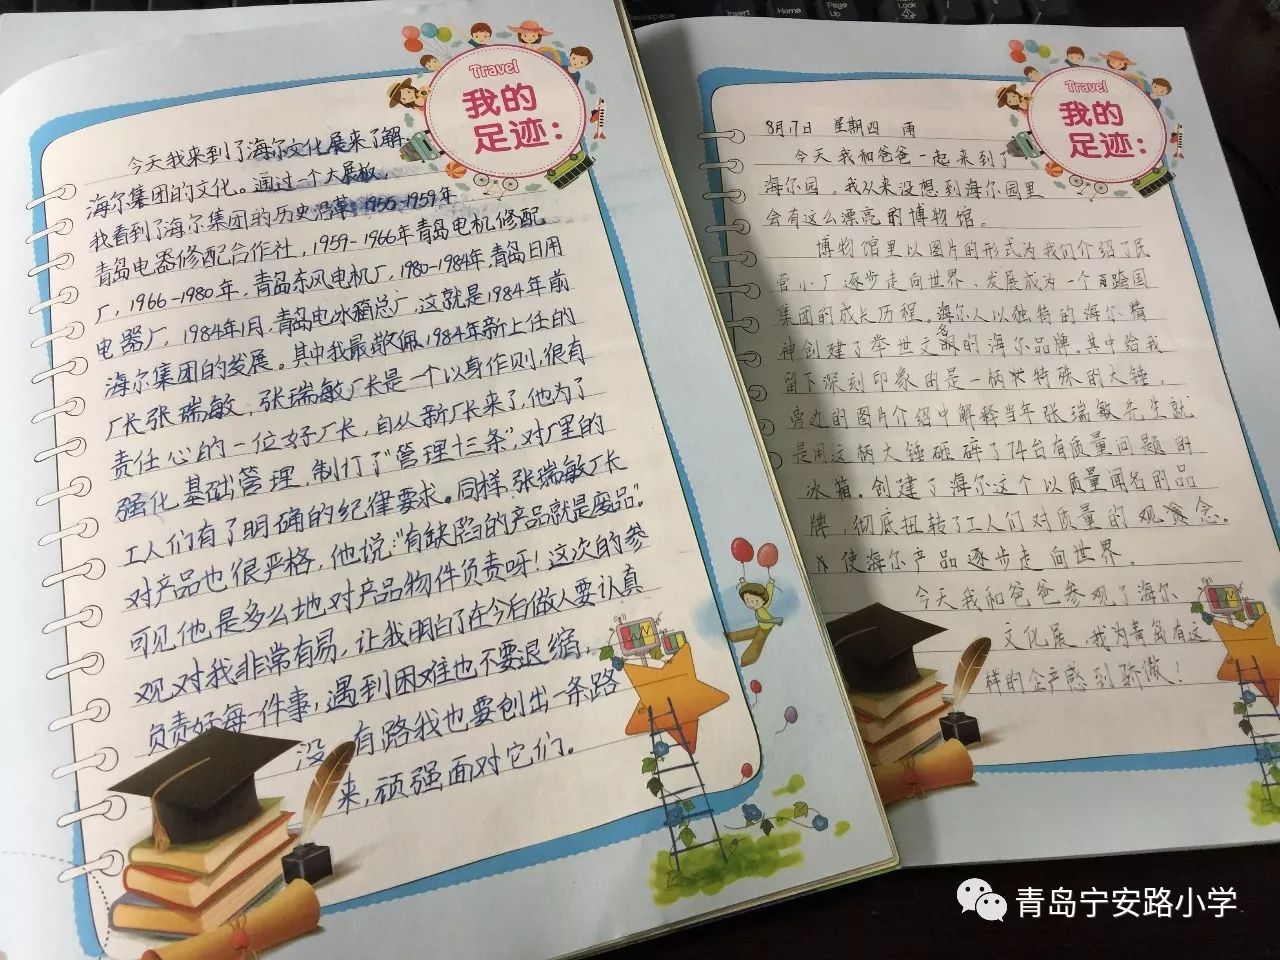 Insert
Home
Page
Up
Lock
Backspace
Travel
我的
足迹：
今天我来到了海尔文化展来了解
海尔集团的文化。通过一个大展板，
我看到了海尔集团的历史沿革 1955-1959年
青岛电器修配合作社，1959-1966年青岛电机修配
厂，1966-1980年，青岛东风电机厂，1980-1984年，青岛日用
电器厂，1984年1月，青岛电冰箱总厂，这就是1984年前
海尔集团的发展。其中我最敬佩1984年新上任的
厂长张瑞敏，张瑞敏厂长是一个以身作则，很有
责任心的一位好厂长，自从新厂长来了，他为了
强化基础管理，制订了"管理十三条"，对厂里的
工人们有了明确的纪律要求。同样，张瑞敏厂长
对产品也很严格，他说："有缺陷的产品就是废品。"
可见他是多么地对产品物件负责呀！这次的参
观对我非常有易，让我明白了在今后做人要认真
负责好每一件事，遇到困难也不要退缩，
没有路我也要创出一条路
来，顽强面对它们。
Travel
我的
足迹：
8月17日 星期四 雨
今天我和爸爸一起来到了
海尔园，我从来没想到海尔园里
会有这么漂亮的博物馆。
博物馆里以图片的形式为我们介绍了民
营小厂逐步走向世界，发展成为一个跨国
集团的成长历程，海尔人以独特的海尔精
神创建了举世文名的海尔品牌。其中给我
留下深刻印象的是一柄特殊的大锤，
旁边的图片介绍中解释当年张瑞敏先生就
是用这柄大锤砸碎了74台有质量问题的
冰箱。创建了海尔这个以质量闻名的品
牌，彻底扭转了工人们对质量的观念。
使海尔产品逐步走向世界。
今天我和爸爸参观了海尔
文化展，我为青岛有这
样的企产感到骄傲！
青岛宁安路小学